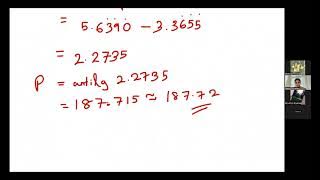 =
= 5.6390 - 3.3655
= 2.2735
P = antilog 2.2735
= 187.715 ≈ 187.72